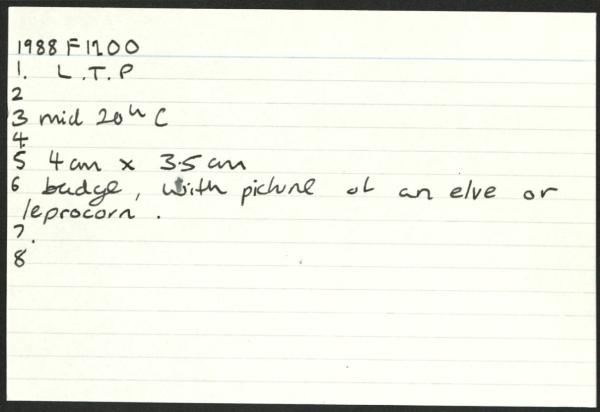 1988 F1200
1. L.T.P
2
3 mid 20th C
4.
5 4cm x 3.5cm
6 badge, with picture of an elve or
leprocorn.
7.
8